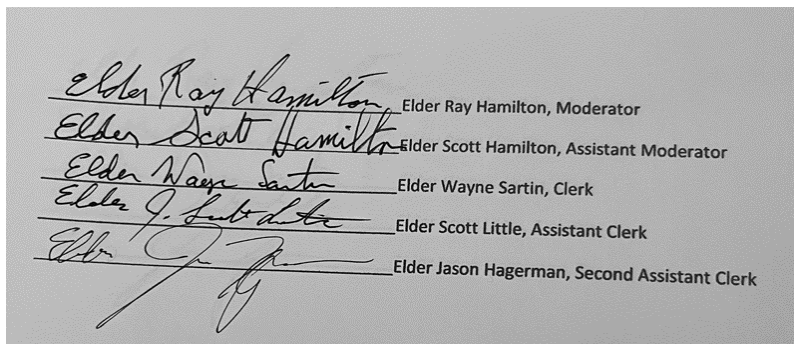 Elder Ray Hamilton, Elder Ray Hamilton, Moderator
Elder Scott Hamilton Elder Scott Hamilton, Assistant Moderator
Elder Wayne Sartin Elder Wayne Sartin, Clerk
Elder J. Scott Little Elder Scott Little, Assistant Clerk
Elder Elder Jason Hagerman, Second Assistant Clerk